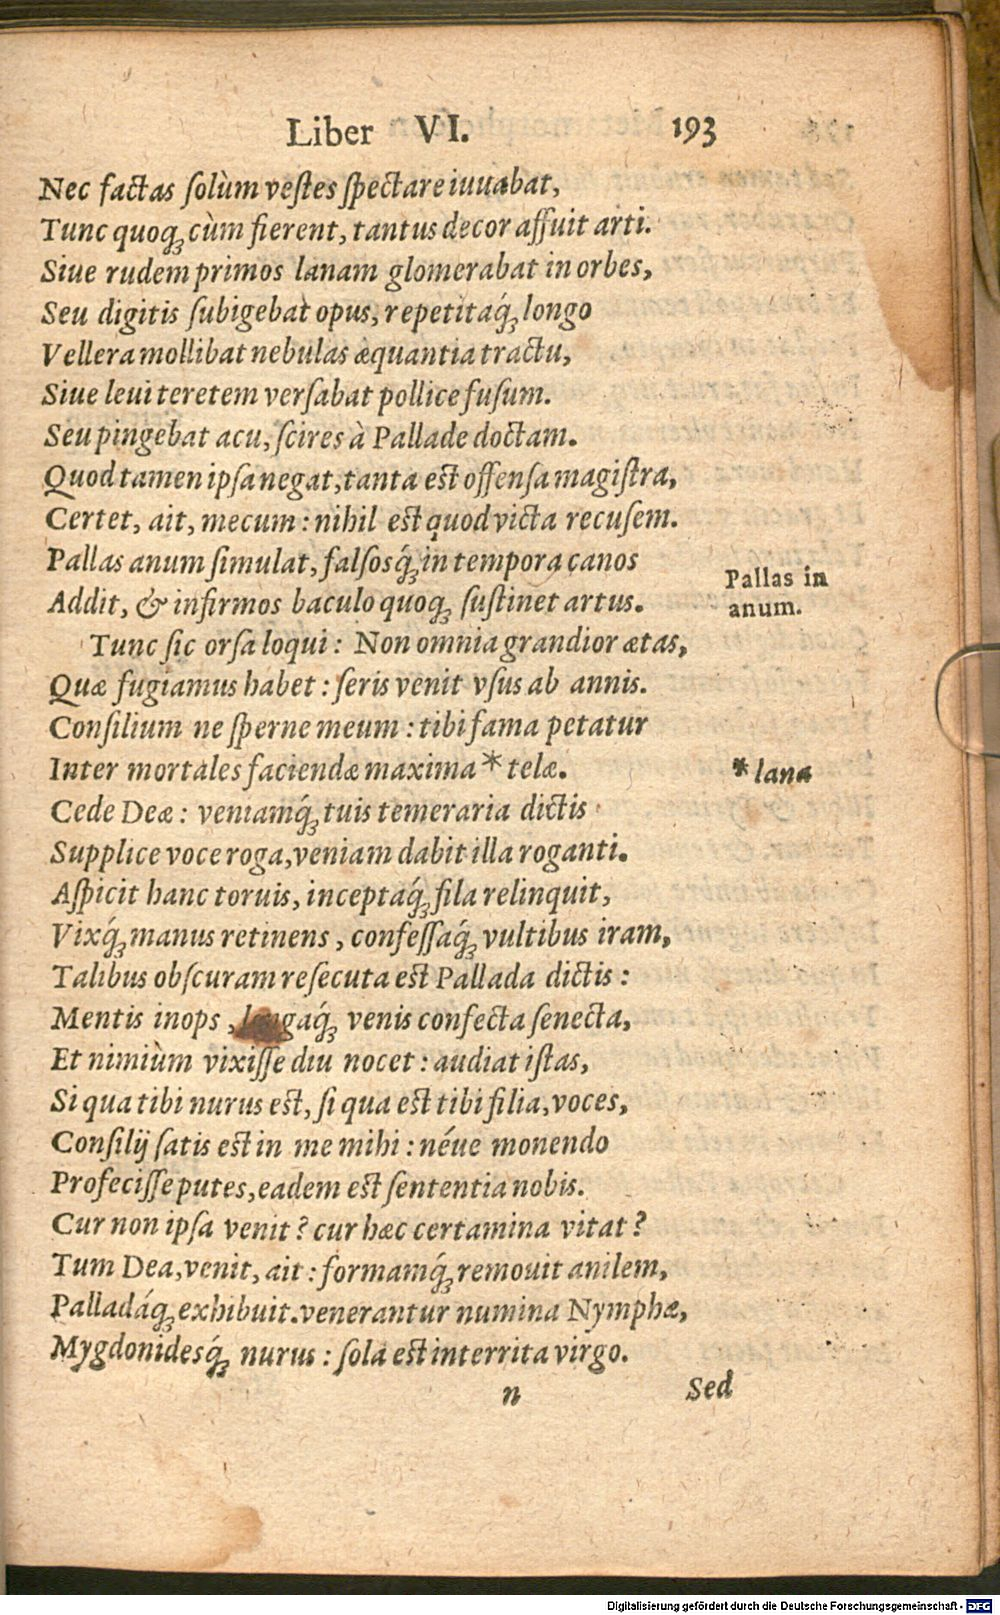 Liber VI. 193
Nec factas ſolùm veſtes ſpectare iuuabat,
Tunc quoq; cùm fierent, tantus decor affuit arti.
Siue rudem primos lanam glomerabat in orbes,
Seu digitis ſubigebat opus, repetitaq́; longo
Vellera mollibat nebulas æquantia tractu,
Siue leui teretem verſabat pollice fuſum.
Seu pingebat acu, ſcires à Pallade doctam.
Quod tamen ipſa negat, tanta eſt offenſa magiſtra,
Certet, ait, mecum: nihil eſt quod victa recuſem.
Pallas anum ſimulat, falſosq́; in tempora canos
Pallas in
Addit, & infirmos baculo quoq; ſuſtinet artus.
anum.
Tunc ſic orſa loqui: Non omnia grandior ætas,
Quæ fugiamus habet: ſeris venit vſus ab annis.
Conſilium ne ſperne meum: tibi fama petatur
Inter mortales faciendæ maxima * telæ.
* lanæ
Cede Deæ: veniamq́; tuis temeraria dictis
Supplice voce roga, veniam dabit illa roganti.
Aſpicit hanc toruis, inceptaq́; fila relinquit,
Vixq́; manus retinens, confeſſaq́; vultibus iram,
Talibus obſcuram reſecuta eſt Pallada dictis:
Mentis inops, longaq́; venis confecta ſenecta,
Et nimiùm vixiſſe diu nocet: audiat iſtas,
Si qua tibi nurus eſt, ſi qua eſt tibi filia, voces,
Conſilij ſatis eſt in me mihi: néue monendo
Profeciſſe putes, eadem eſt ſententia nobis.
Cur non ipſa venit? cur hæc certamina vitat?
Tum Dea, venit, ait: formamq́; remouit anilem,
Palladáq; exhibuit. venerantur numina Nymphæ,
Mygdonidesq́; nurus: ſola eſt interrita virgo.
n Sed
Digitalisierung gefördert durch die Deutsche Forschungsgemeinschaft - DFG